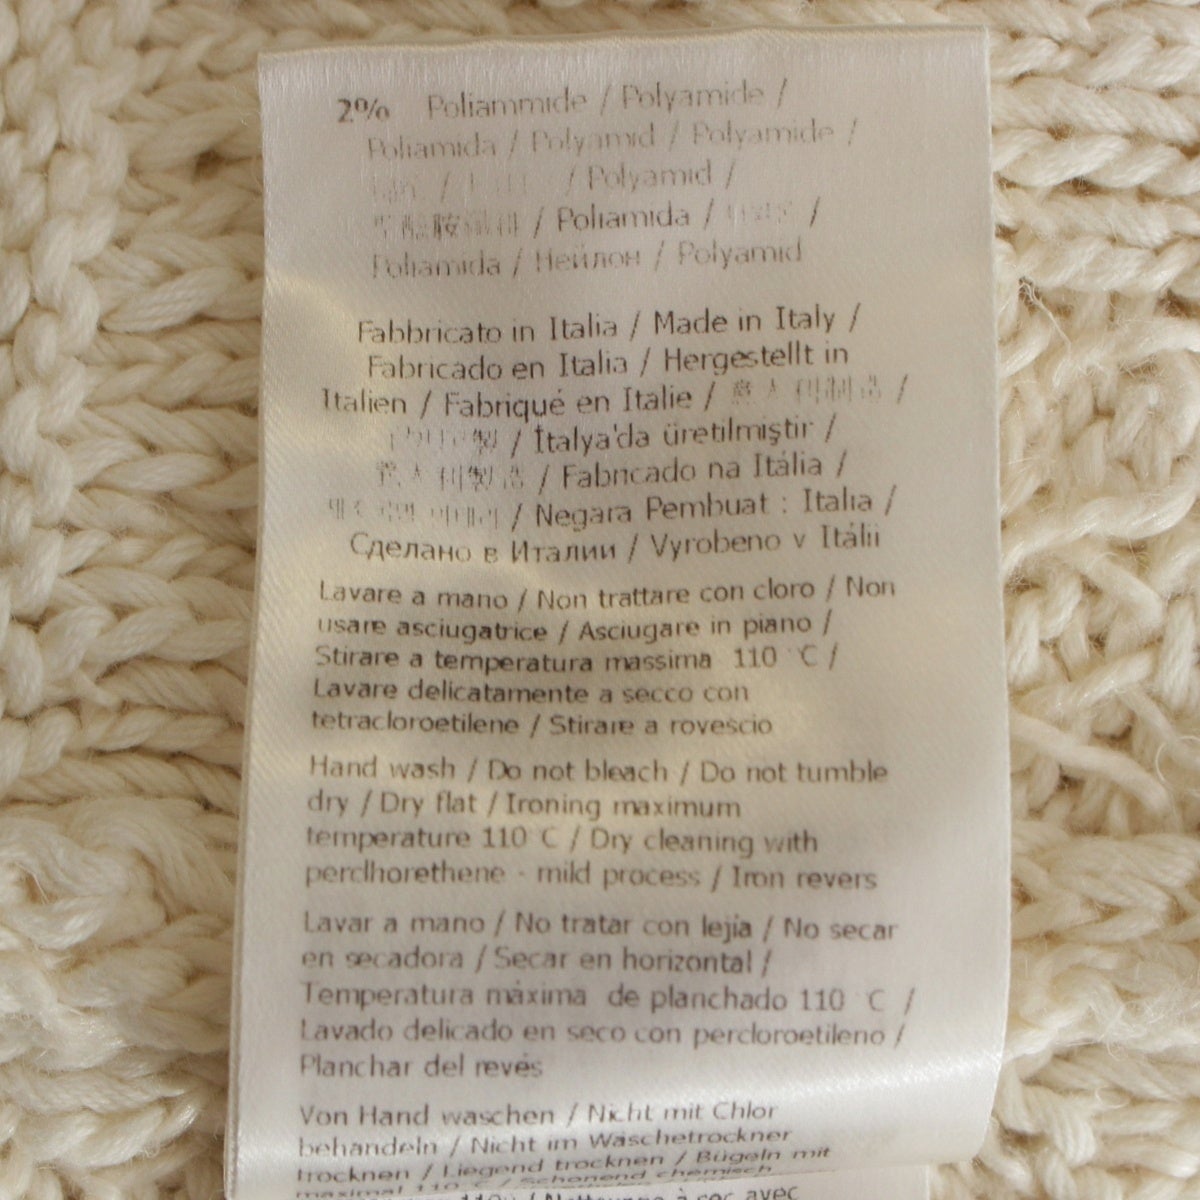 2% Poliammide / Polyamide /
Poliamida / Polyamid / Polyamide /
/ / Polyamid /
/ Poliamida / /
Poliamida / Нейлон / Polyamid
Fabbricato in Italia / Made in Italy /
Fabricado en Italia / Hergestellt in
Italien / Fabriqué en Italie / 意大利制造 /
/ İtalya'da üretilmiştir /
意大利製造 / Fabricado na Itália /
/ Negara Pembuat : Italia /
Сделано в Италии / Vyrobeno v Itálii
Lavare a mano / Non trattare con cloro / Non
usare asciugatrice / Asciugare in piano /
Stirare a temperatura massima 110 °C /
Lavare delicatamente a secco con
tetracloroetilene / Stirare a rovescio
Hand wash / Do not bleach / Do not tumble
dry / Dry flat / Ironing maximum
temperature 110 C / Dry cleaning with
perclhorethene - mild process / Iron revers
Lavar a mano / No tratar con lejía / No secar
en secadora / Secar en horizontal /
Temperatura máxima de planchado 110 °C /
Lavado delicado en seco con percloroetileno /
Planchar del revés
Von Hand waschen / Nicht mit Chlor
behandeln / Nicht im Wäschetrockner
trocknen / Liegend trocknen / Bügeln mit
maximal 110 °C / Schonend chemisch
110° / Nettoyage à sec avec